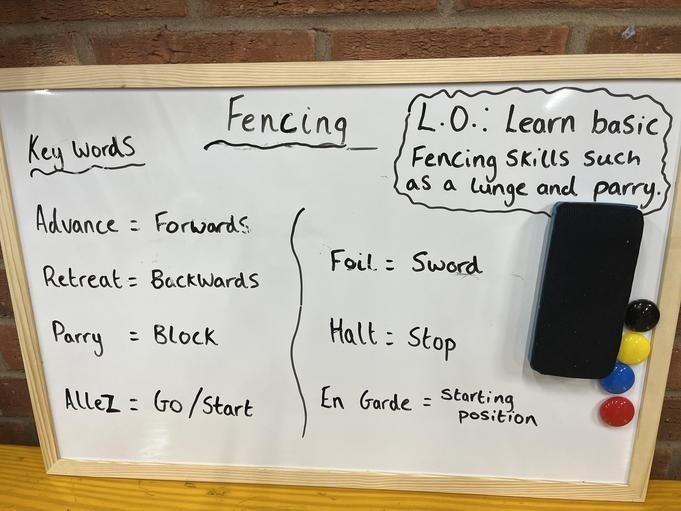 Fencing
L.O.: Learn basic
Fencing skills such
as a lunge and parry.
Key Words
Advance = Forwards
Retreat = Backwards
Parry = Block
AlleZ = Go/Start
Foil = Sword
Halt = Stop
En Garde = starting
position